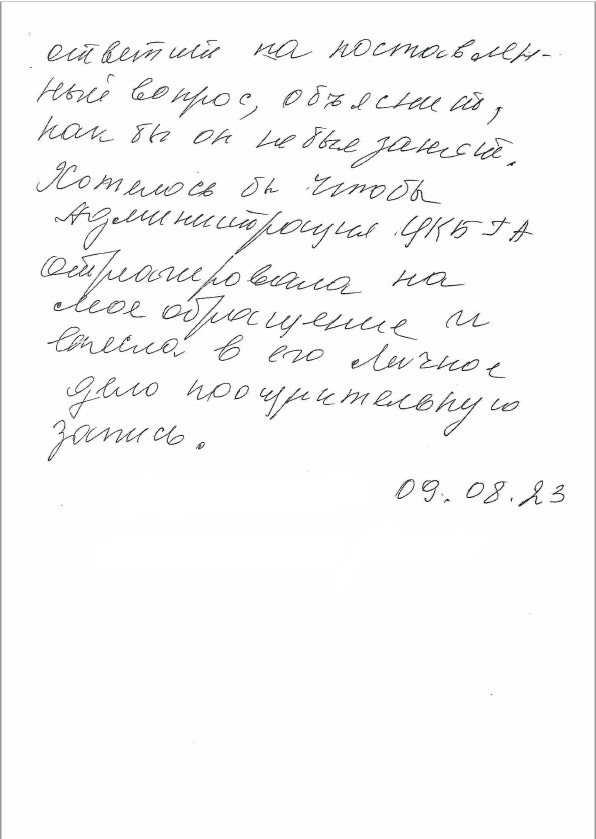 ответит на поставлен-
ный вопрос, объяснит,
как бы он не был занят.
Хотелось бы чтобы
Администрация ЦКБ ГА
отреагировала на
мое обращение и
внесла в его личное
дело поощрительную
запись.
09.08.23